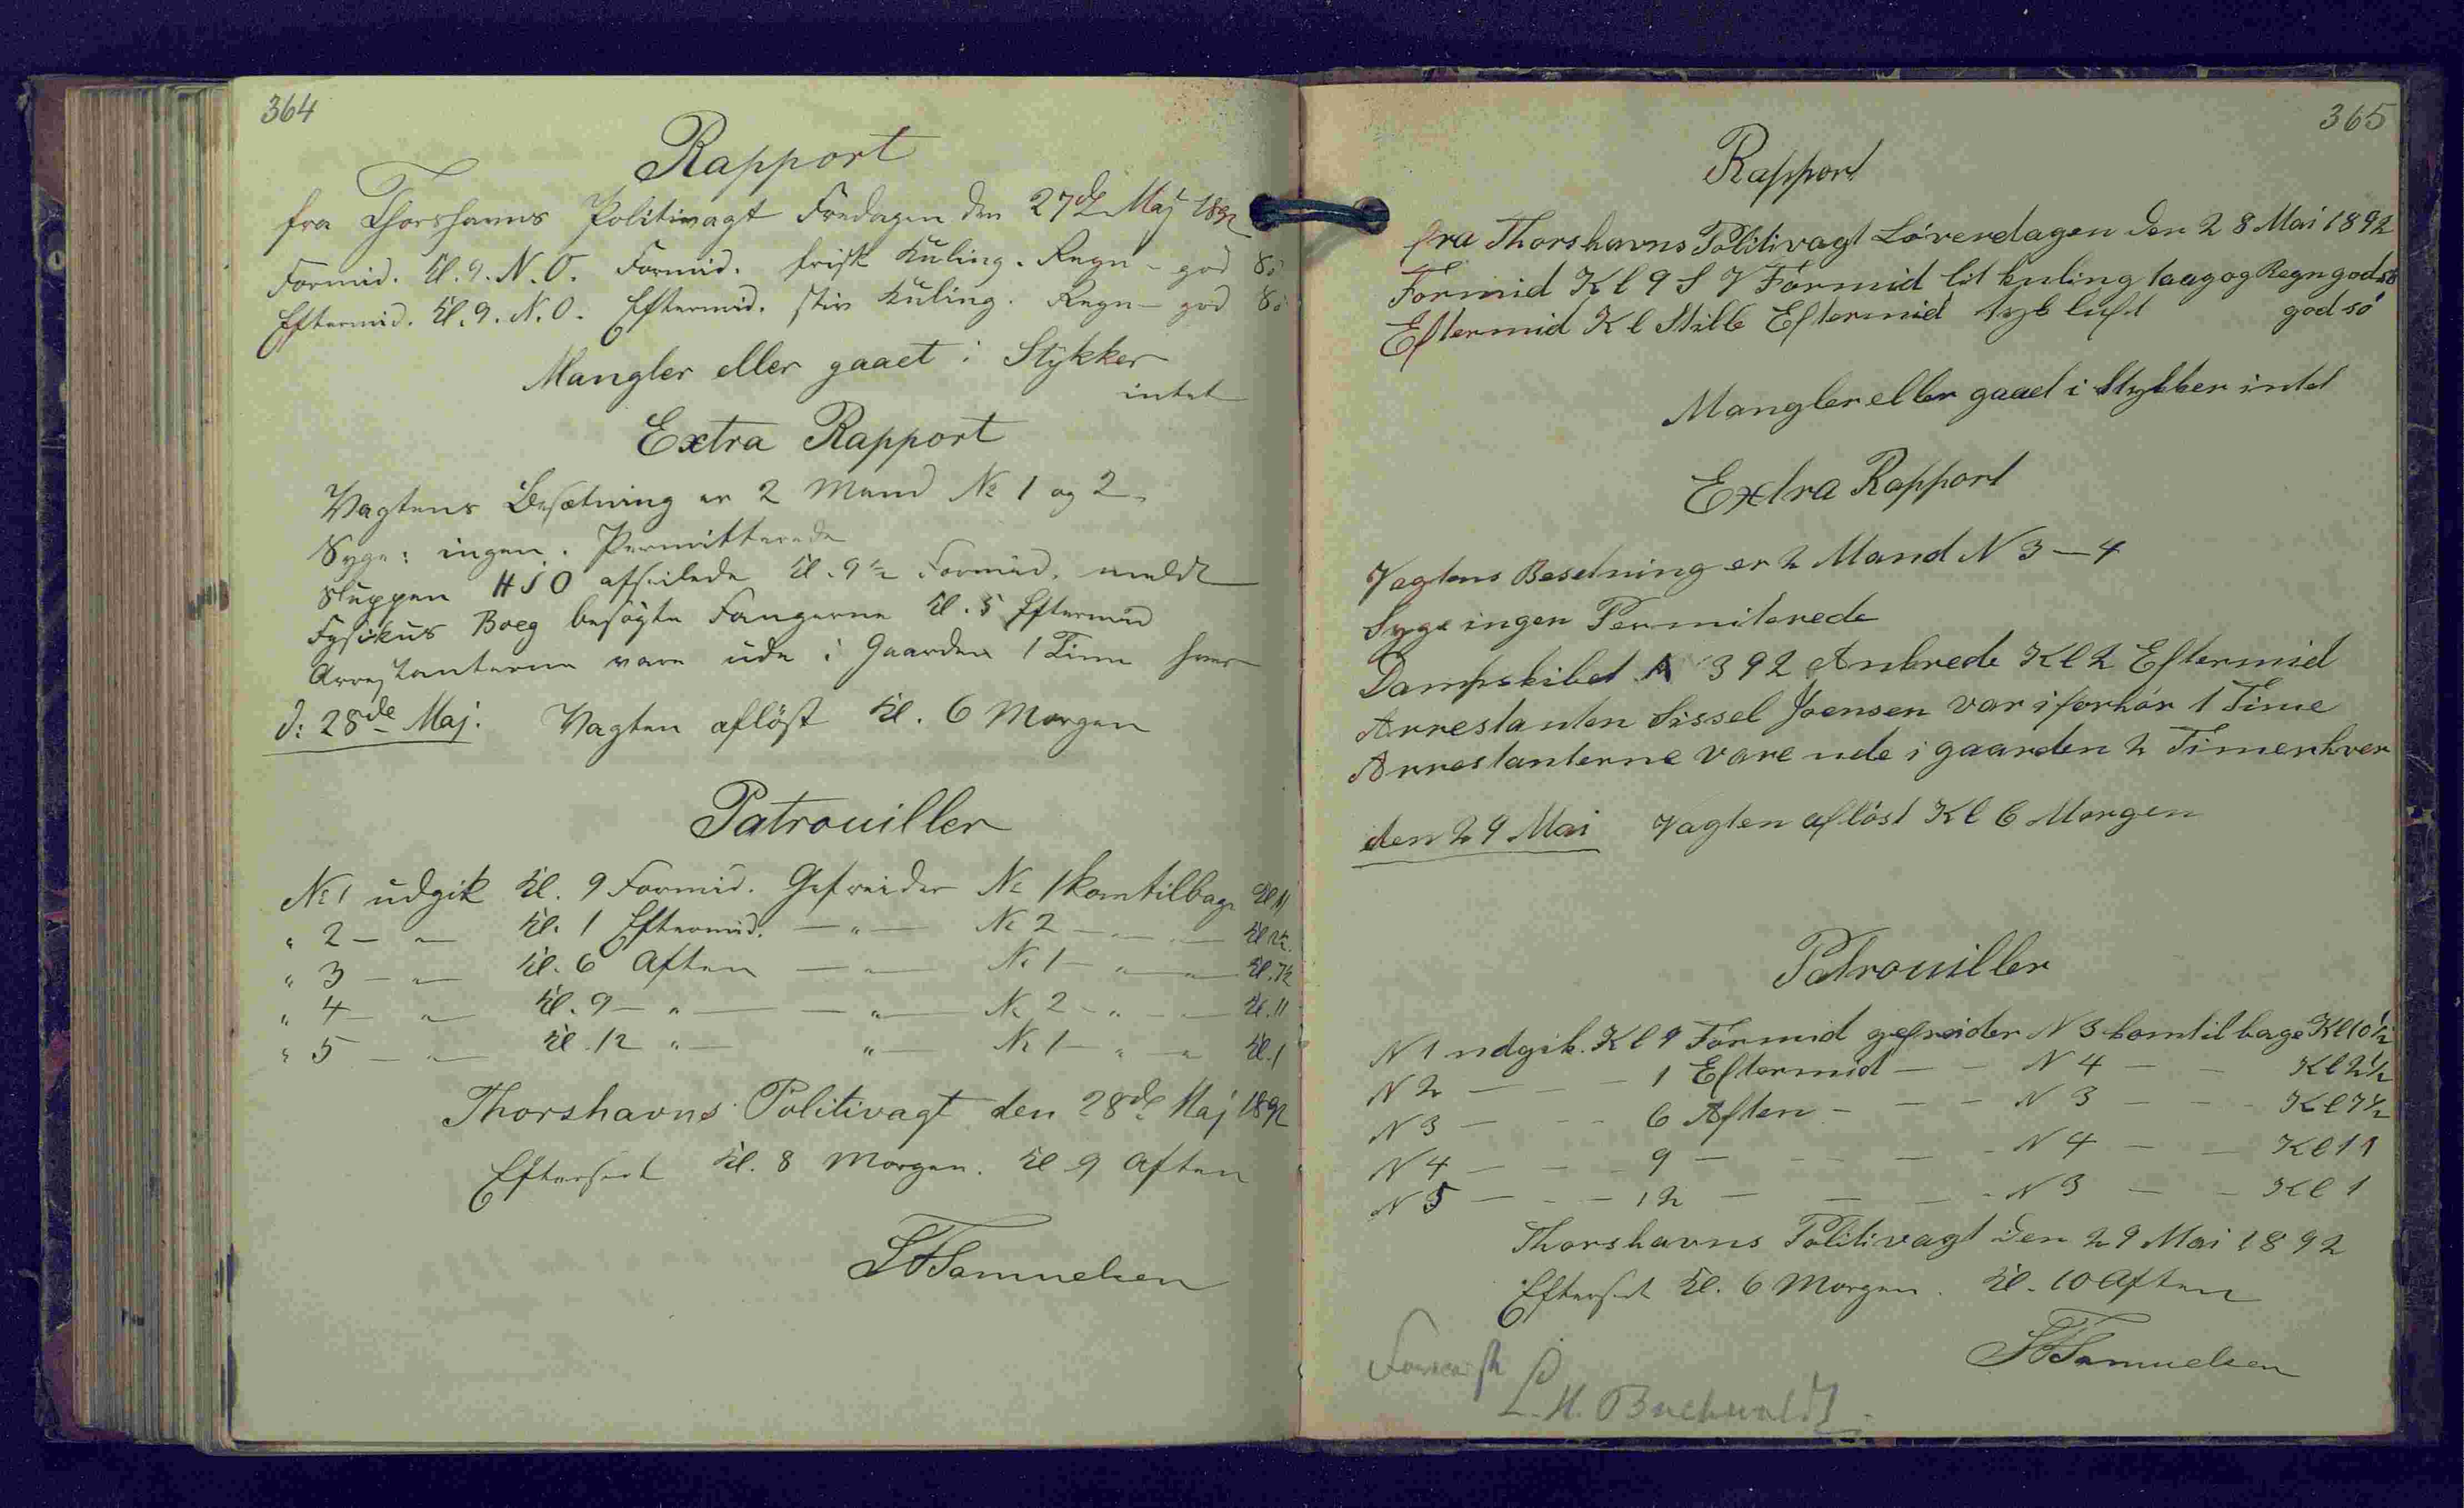 364
Rapport
fra Thorshavns Politivagt Fredagen den 27de Maj 1892
Formid. Kl. 9. N.O. Formid. frisk Kuling. Regn - god Sö
Eftermid. Kl. 9. N.O. Eftermid. stiv Kuling. Regn - god Sö
Mangler eller gaaet i Stykker
intet
Extra Rapport
Vagtens Besætning er 2 Mand No 1 og 2.
Syge: ingen. Permitterede
Sluppen HJO afseilede Kl. 9½ Formid. meldt
Fysikus Boeg besøgte Fangerne Kl. 5 Eftermid
Arrestanterne vare ude i Gaarden 1 Time hver
d: 28de Maj. Vagten aflöst Kl. 6 Morgen
Patrouiller
No 1 udgik Kl. 9 Formid. Gefreider No 1 kom tilbage Kl 11
" 2 — " — Kl. 1 Eftermid. — " — No 2 — " — " — Kl 2½.
" 3 — " — Kl. 6 Aften — " — No 1 — " — " — Kl. 7½
" 4 — " — Kl. 9 — " — — " — No 2 — " — " — Kl. 11
" 5 — " — Kl. 12 " — " — No 1 — " — " Kl. 1
Thorshavns Politivagt den 28de Maj 1892
Efterseet Kl. 8 Morgen. Kl 9 Aften
Samuelsen
365
Rapport
fra Thorshavns Politivagt Löverdagen den 28 Mai 1892
Formid Kl 9 S V Formid lit kuling taag og Regn god sö
Eftermid Kl Stille Eftermid tyk luft god sö
Mangler eller gaaet i Stykker intet
Extra Rapport
Vagtens Besetning er 2 Mand N 3 — 4
Syge ingen Permiterede
Dampskibet A 392 Ankrede Kl 2 Eftermid
Arrestanten Sissel Joensen var i forhör 1 Time
Arrestanterne vare ude i gaarden 2 Timer hver
den 29 Mai Vagten aflöst Kl 6 Morgen
Patrouiller
N 1 udgik. Kl 9 Formid gefreider N 3 kom tilbage Kl 10½
N 2 — — — 1 Eftermid — — N 4 — — Kl 2½
N 3 — — — 6 Aften — — — N 3 — — Kl 7½
N 4 — — — 9 — — — — N 4 — — Kl 11
N 5 — — — 12 — — — N 3 — — Kl 1
Thorshavns Politivagt den 29 Mai 1892
Efterseet Kl. 6 Morgen. Kl. 10 Aften
Samuelsen
L. H. Buchwaldt